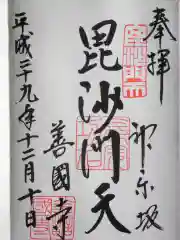 奉拝
神楽坂
毘沙門天
善國寺
平成二十九年十二月十日